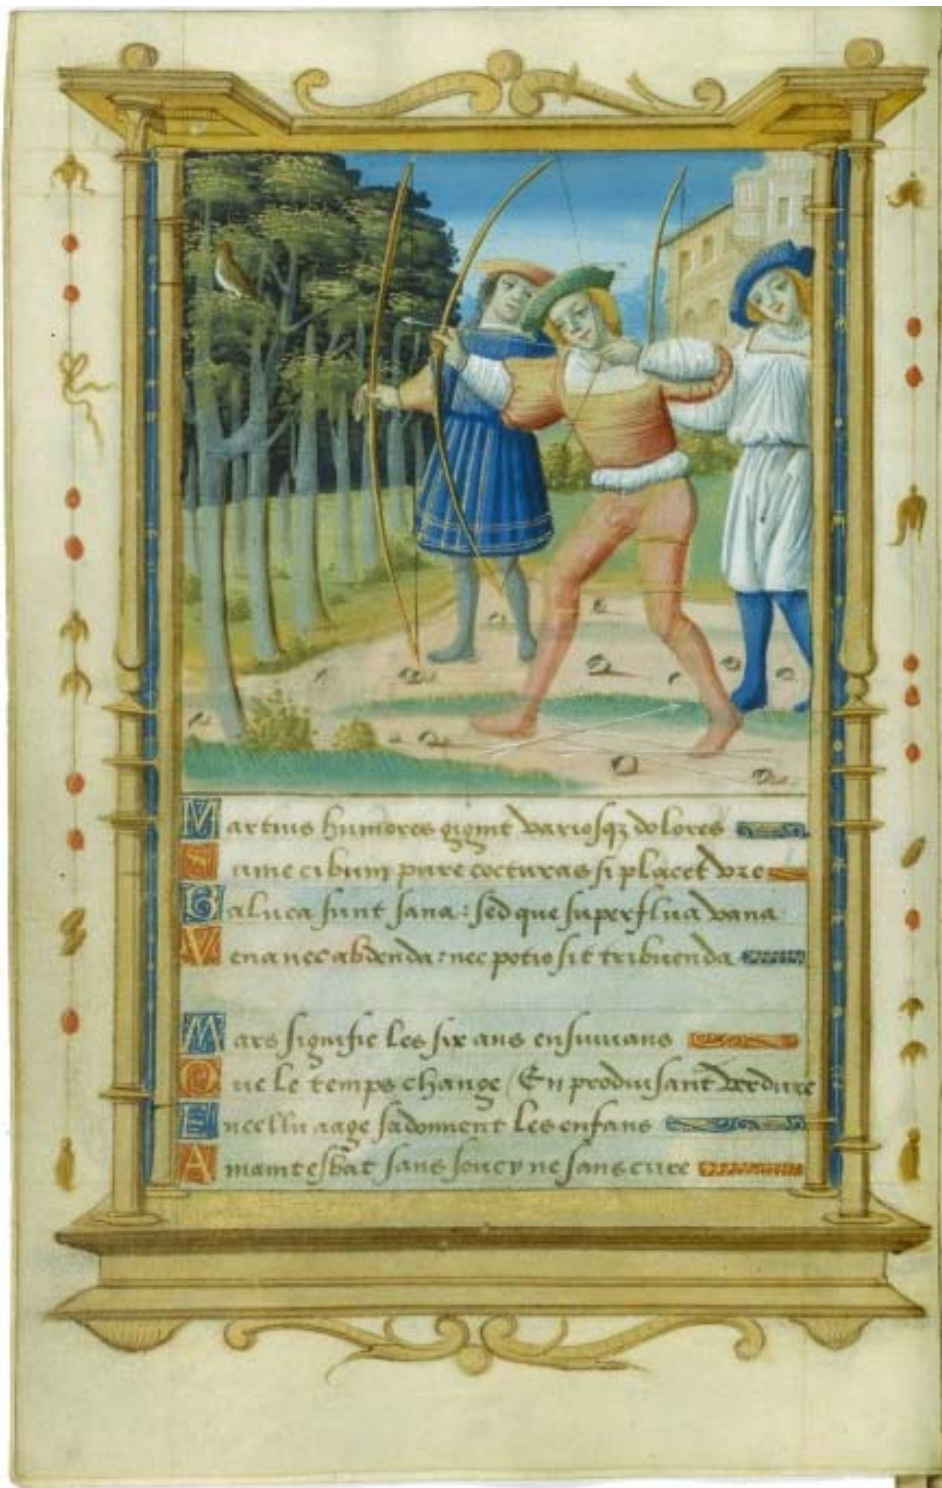 Martius humores gignit variosq; dolores
Sume cibum pure cocturas si placet vre
Balnea sunt sana: sed que superflua vana
Vena nec abdenda: nec potio sit tribuenda
Mars signifie les six ans ensuiuans
Que le temps change / En produisant verdure
En celluy aage sadonnent les enfans
A maint esbat sans soucy ne sans cure